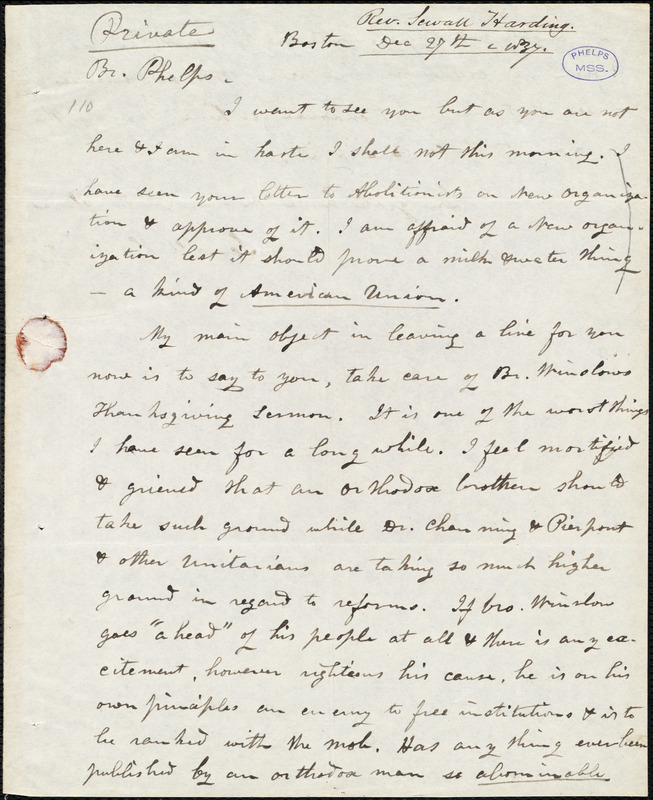 Private
Rev. Sewall Harding.
Boston Dec 27th 1837.
PHELPS
MSS.
Br. Phelps,
110
I want to see you but as you are not
here & I am in haste I shall not this morning. I
have seen your letter to Abolitionists on New Organiza-
tion & approve of it. I am affraid of a New organ-
ization lest it should prove a milk & water thing
— a kind of American Union.
My main object in leaving a line for you
now is to say to you, take care of Br. Winslow's
Thanksgiving Sermon. It is one of the worst things
I have seen for a long while. I feel mortified
& grieved that an orthodox brother should
take such ground while Dr. Channing & Pierpont
& other Unitarians are taking so much higher
ground in regard to reforms. If bro. Winslow
goes "ahead" of his people at all & there is any ex-
citement, however righteous his cause, he is on his
own principles an enemy to free institutions & is to
be ranked with the mob. Has any thing ever been
published by an orthodox man so abominable